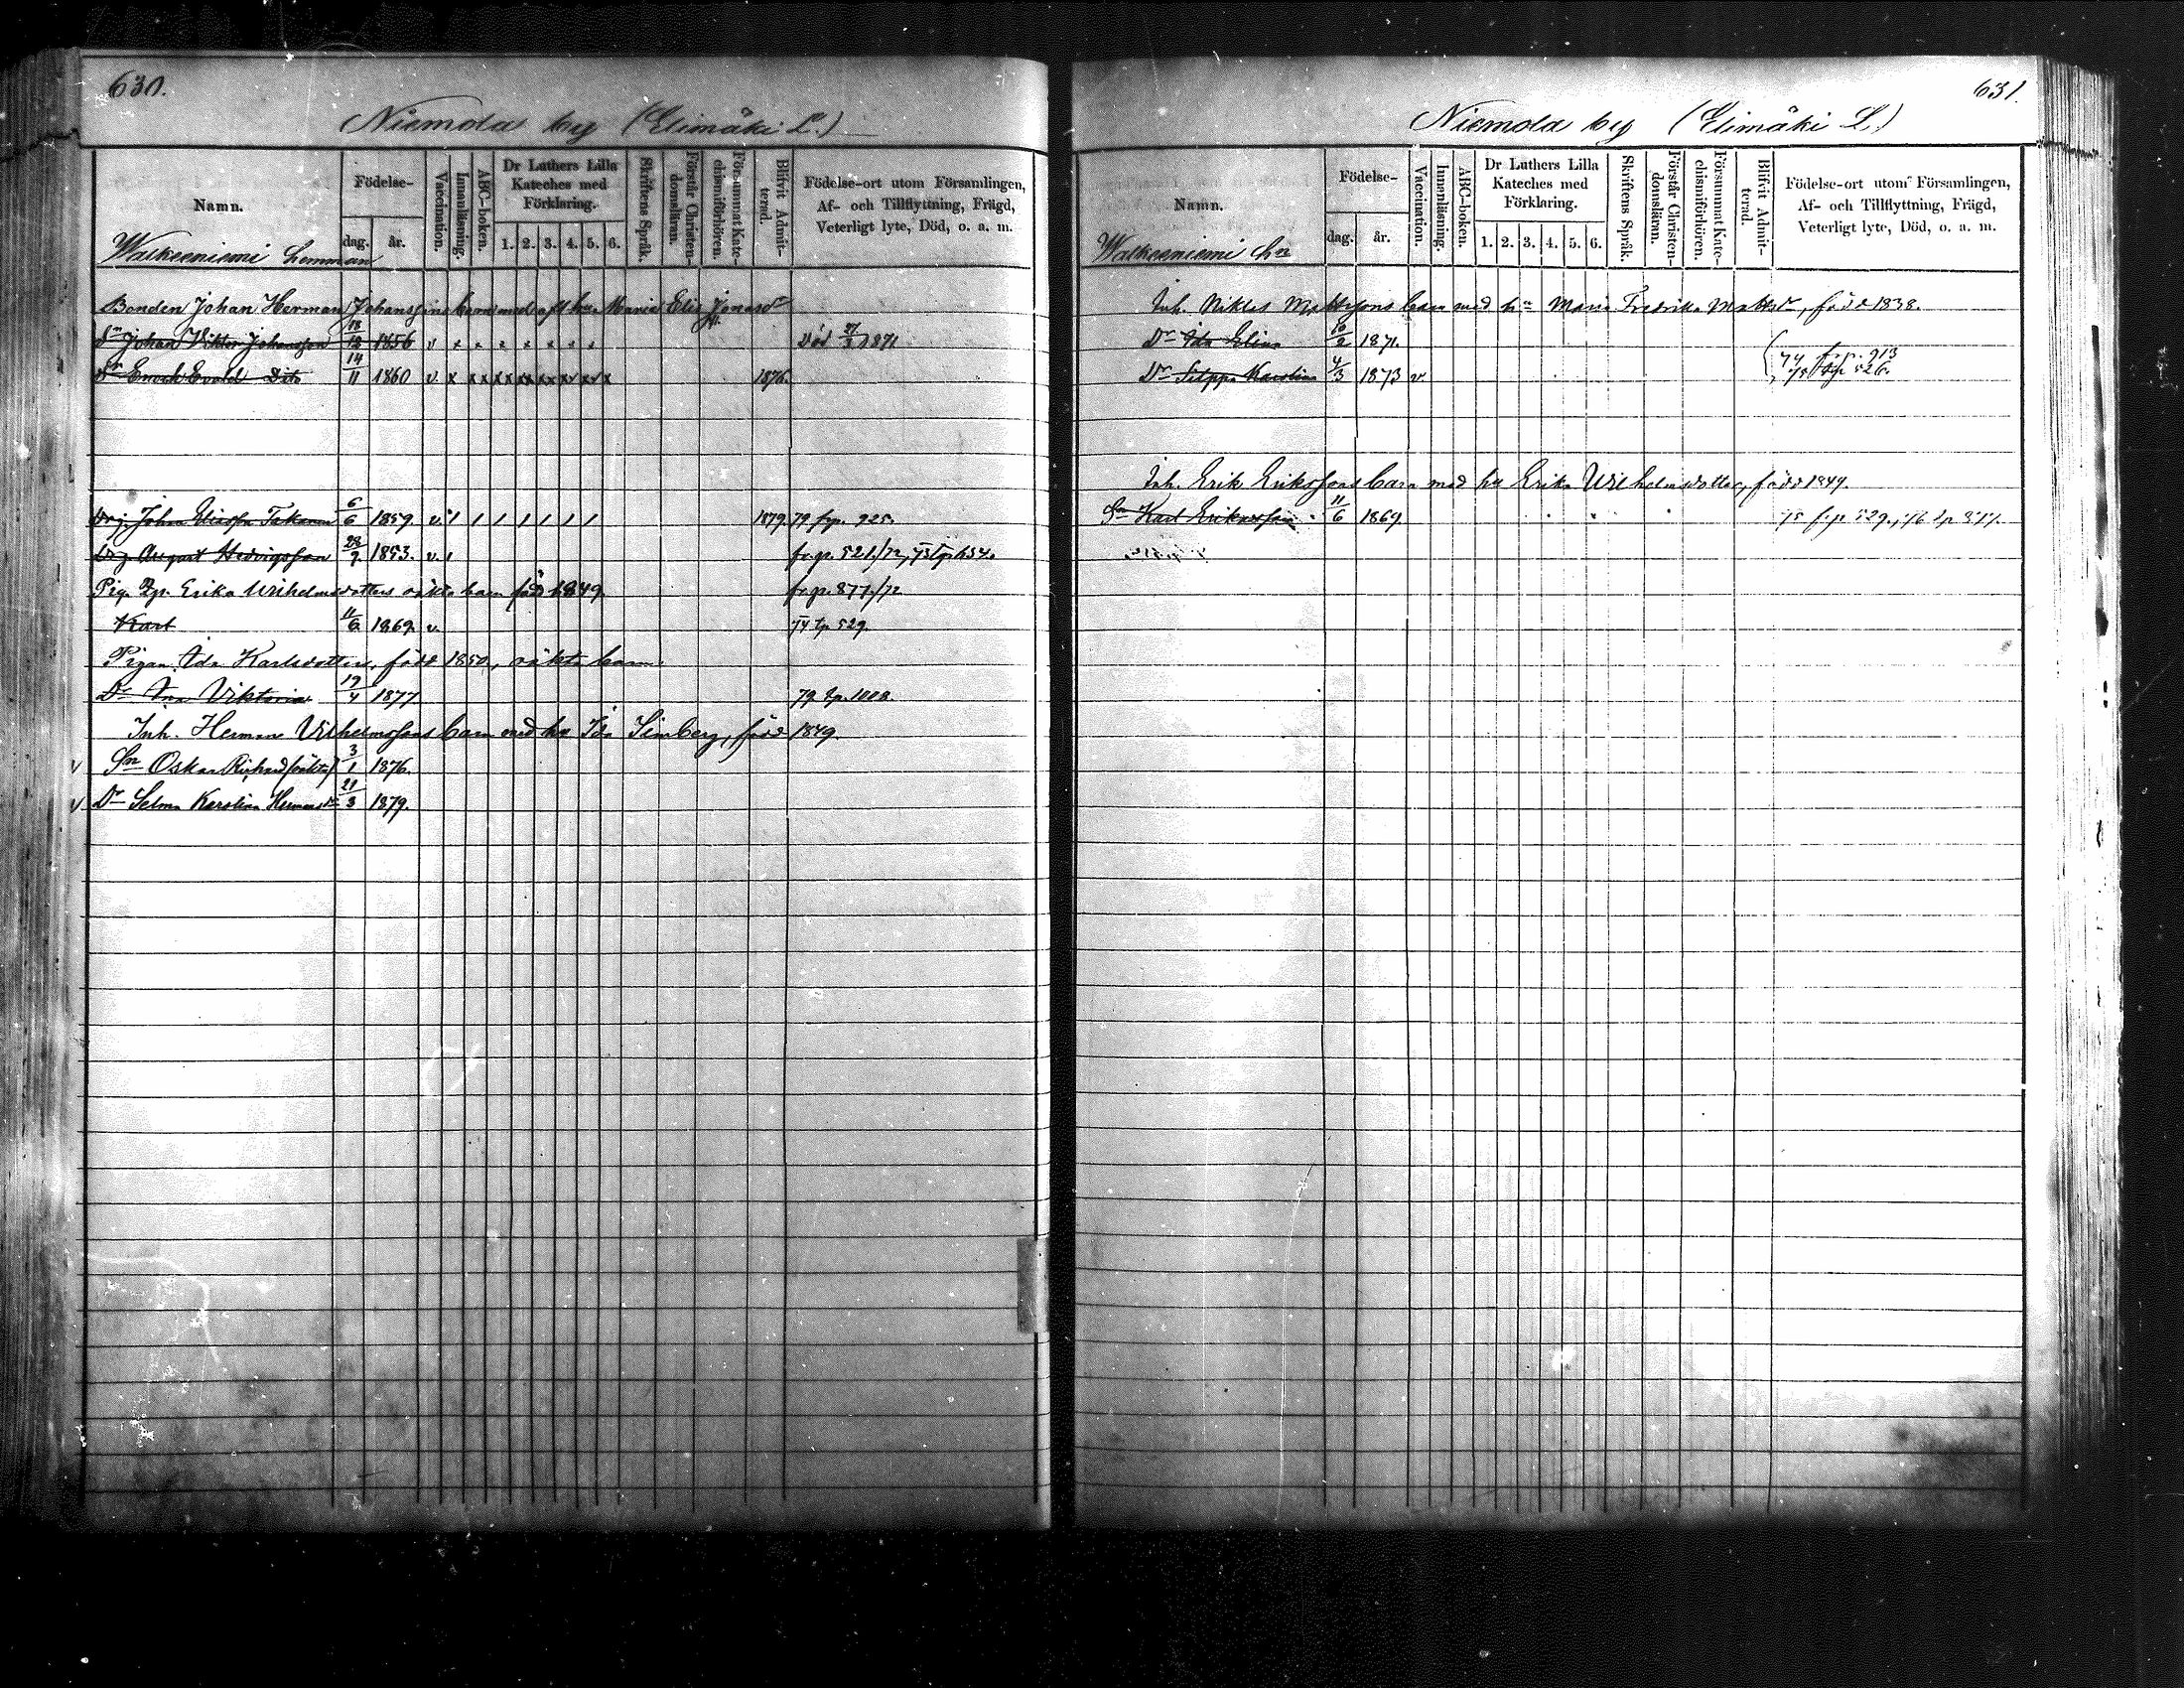 630.
Niemola by (Elimäki L.)
Namn.
Födelse-
dag.
år.
Vaccination.
Innanläsning.
ABC-boken.
Dr Luthers Lilla Kateches med Förklaring.
1. 2. 3. 4. 5. 6.
Skriftens Språk.
Förstår Christendomsläran.
Försummat Katechismiförhören.
Blifvit Admitterad.
Födelse-ort utom Församlingen,
Af- och Tillflyttning, Frägd,
Veterligt lyte, Död, o. a. m.
Walkeeniemi hemman
Bonden Johan Herman Johanssons barn med afl. hu Maria Elis. Jonasdr
Sn Johan Viktor Johansson 18/12 1856 v x x x x x x x x Död 1871
Sn Enoch Evald Dito 14/11 1860 v. x xx xx xx xx xx xx x 1876.
Drg. Johan Eliasson Takanen 6/6 1859. v. 1879. 79 fr.p. 925.
Drg. August Hedvigsson 28/7 1853. v. fr.p. 521./72, 73 tp 634.
Pig. Erika Wilhelmsdotters oäkta barn född 1849. fr.p. 877./72
Karl 11/6 1869. v. 74 tp 529.
Pigan Ida Karlsdotter, född 1850, oäkta barn
Dr Viktoria 19/4 1877 79 tp. 1008.
Inh. Herman Vilhelmssons barn med hu Ida Simberg, född 1849.
v Sn Oskar Richard (oäkta) 3/1 1876.
v Dr Selma Karolina Hermansdr 21/3 1879.
631.
Niemola by (Elimäki L.)
Namn.
Födelse-
dag.
år.
Vaccination.
Innanläsning.
ABC-boken.
Dr Luthers Lilla Kateches med Förklaring.
1. 2. 3. 4. 5. 6.
Skriftens Språk.
Förstår Christendomsläran.
Försummat Katechismiförhören.
Blifvit Admitterad.
Födelse-ort utom Församlingen,
Af- och Tillflyttning, Frägd,
Veterligt lyte, Död, o. a. m.
Walkeeniemi hn
Inh. Niklas Mattssons barn med hu Maria Fredrika Mattsdr, född 1838.
Dr Ida Elina 10/2 1871.
74 f.p. 913
Dr Seppa Karolina 4/3 1873 v. 75 tp 526.
Inh. Erik Erikssons barn med hu Erika Wilhelmsdotter, född 1849.
Sn Karl Eriksson 11/6 1869. 75 f.p. 529.; 76 tp 877.